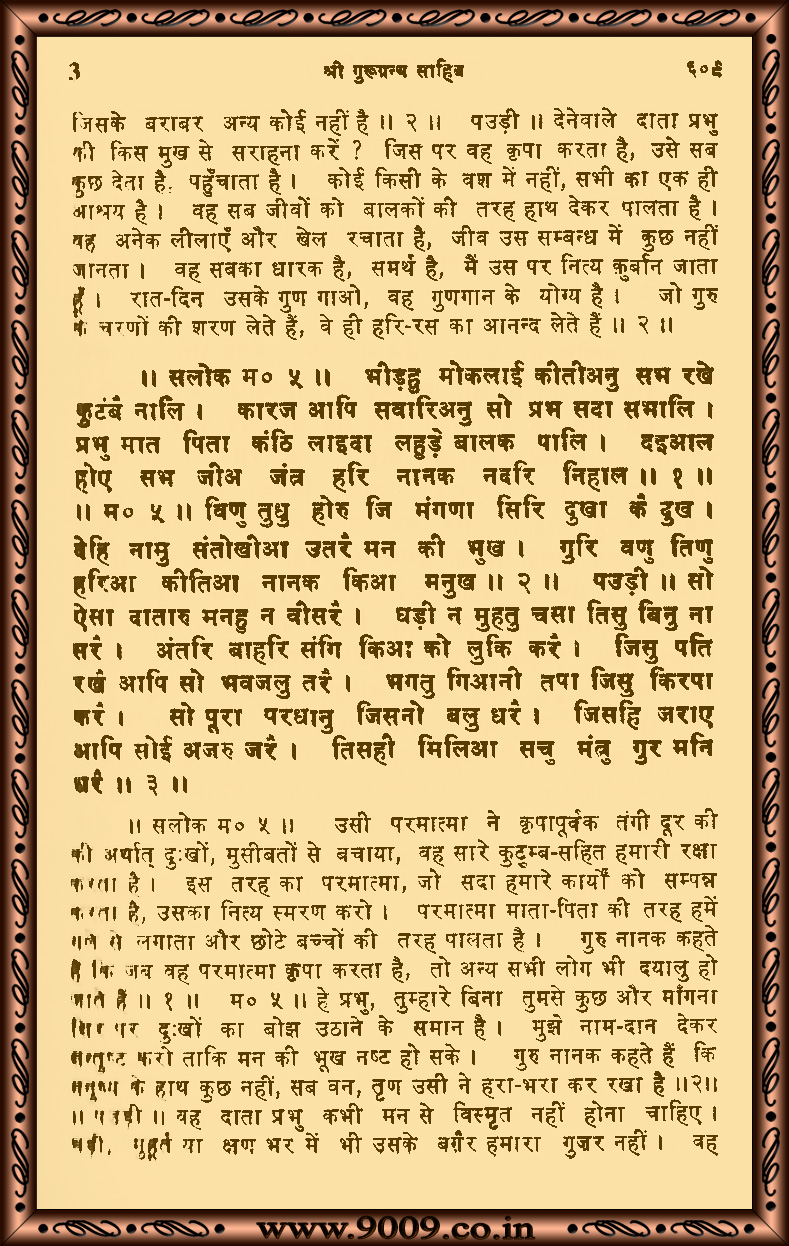 3 श्री गुरूग्रन्थ साहिब ६०९
जिसके बराबर अन्य कोई नहीं है ॥ २ ॥ पउड़ी ॥ देनेवाले दाता प्रभु
की किस मुख से सराहना करें ? जिस पर वह कृपा करता है, उसे सब
कुछ देता है, पहुँचाता है । कोई किसी के वश में नहीं, सभी का एक ही
आश्रय है । वह सब जीवों को बालकों की तरह हाथ देकर पालता है ।
वह अनेक लीलाएँ और खेल रचाता है, जीव उस सम्बन्ध में कुछ नहीं
जानता । वह सबका धारक है, समर्थ है, मैं उस पर नित्य क़ुर्बान जाता
हूँ । रात-दिन उसके गुण गाओ, वह गुणगान के योग्य है । जो गुरु
के चरणों की शरण लेते हैं, वे ही हरि-रस का आनन्द लेते हैं ॥ २ ॥
॥ सलोक म० ५ ॥ भीड़हु मोकलाई कीतीअनु सभ रखे
कुटंबै नालि । कारज आपि सवारिअनु सो प्रभ सदा सभालि ।
प्रभु मात पिता कंठि लाइदा लहुड़े बालक पालि । दइआल
होए सभ जीअ जंत्र हरि नानक नदरि निहाल ॥ १ ॥
॥ म० ५ ॥ विणु तुधु होरु जि मंगणा सिरि दुखा कै दुख ।
देहि नामु संतोखीआ उतरै मन की भुख । गुरि वणु तिणु
हरिआ कीतिआ नानक किआ मनुख ॥ २ ॥ पउड़ी ॥ सो
ऐसा दातारु मनहु न वीसरै । घड़ी न मुहतु चसा तिसु बिनु ना
सरै । अंतरि बाहरि संगि किआ को लुकि करै । जिसु पति
रखै आपि सो भवजलु तरै । भगतु गिआनी तपा जिसु किरपा
करै । सो पूरा परधानु जिसनो बलु धरै । जिसहि जराए
आपि सोई अजरु जरै । तिसही मिलिआ सचु मंत्रु गुर मनि
धरै ॥ ३ ॥
॥ सलोक म० ५ ॥ उसी परमात्मा ने कृपापूर्वक तंगी दूर की
की अर्थात् दुःखों, मुसीबतों से बचाया, वह सारे कुटुम्ब-सहित हमारी रक्षा
करता है । इस तरह का परमात्मा, जो सदा हमारे कार्यों को सम्पन्न
करता है, उसका नित्य स्मरण करो । परमात्मा माता-पिता की तरह हमें
गले से लगाता और छोटे बच्चों की तरह पालता है । गुरु नानक कहते
हैं कि जब वह परमात्मा कृपा करता है, तो अन्य सभी लोग भी दयालु हो
जाते हैं ॥ १ ॥ म० ५ ॥ हे प्रभु, तुम्हारे बिना तुमसे कुछ और माँगना
सिर पर दुःखों का बोझ उठाने के समान है । मुझे नाम-दान देकर
सन्तुष्ट करो ताकि मन की भूख नष्ट हो सके । गुरु नानक कहते हैं कि
मनुष्य के हाथ कुछ नहीं, सब वन, तृण उसी ने हरा-भरा कर रखा है ॥२॥
॥ पउड़ी ॥ वह दाता प्रभु कभी मन से विस्मृत नहीं होना चाहिए ।
घड़ी, मुहूर्त या क्षण भर में भी उसके बग़ैर हमारा गुज़र नहीं । वह
www.9009.co.in